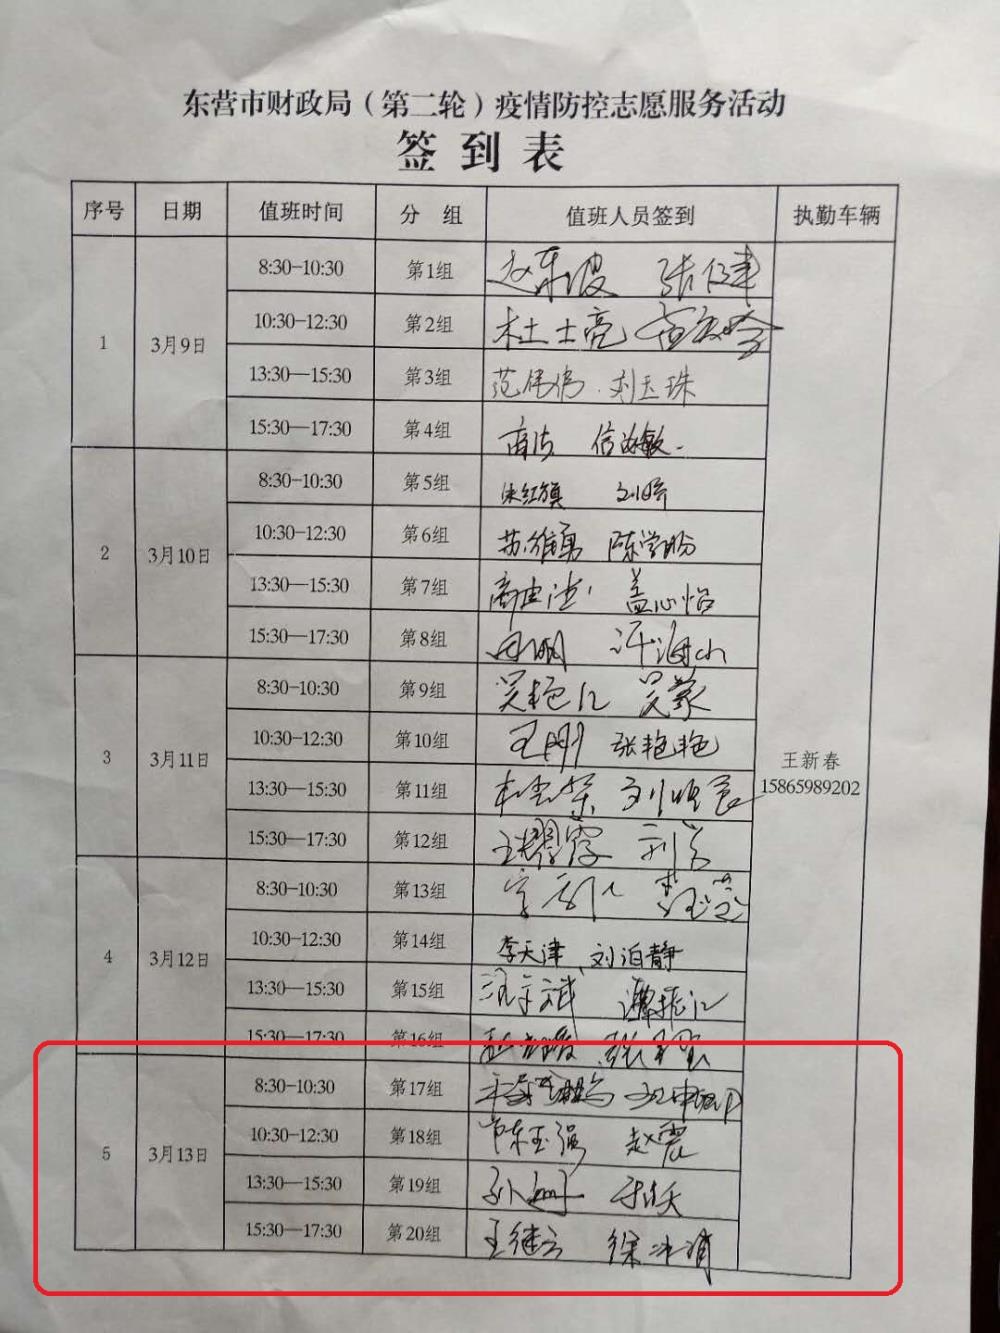 东营市财政局（第二轮）疫情防控志愿服务活动
签到表
序号 日期 值班时间 分组 值班人员签到 执勤车辆
1 3月9日 8:30-10:30 第1组 赵东波 张健
10:30-12:30 第2组 杜士亮
13:30—15:30 第3组 范伟伟 刘玉珠
15:30—17:30 第4组 商洁 信海敏
2 3月10日 8:30-10:30 第5组 朱红旗 刘晓
10:30-12:30 第6组 苏维勇 陈学盼
13:30—15:30 第7组 商建法 盖心怡
15:30-17:30 第8组 周鹏
3 3月11日 8:30-10:30 第9组 吴艳江 吴蒙
10:30-12:30 第10组 王刚 张艳艳
13:30—15:30 第11组
15:30—17:30 第12组 王耀霖
4 3月12日 8:30-10:30 第13组
10:30-12:30 第14组 李天津 刘泊静
13:30—15:30 第15组 谭振江
15:30—17:30 第16组
王新春
15865989202
5 3月13日 8:30-10:30 第17组
10:30—12:30 第18组 陈玉强 赵震
13:30—15:30 第19组
15:30—17:30 第20组 王继云